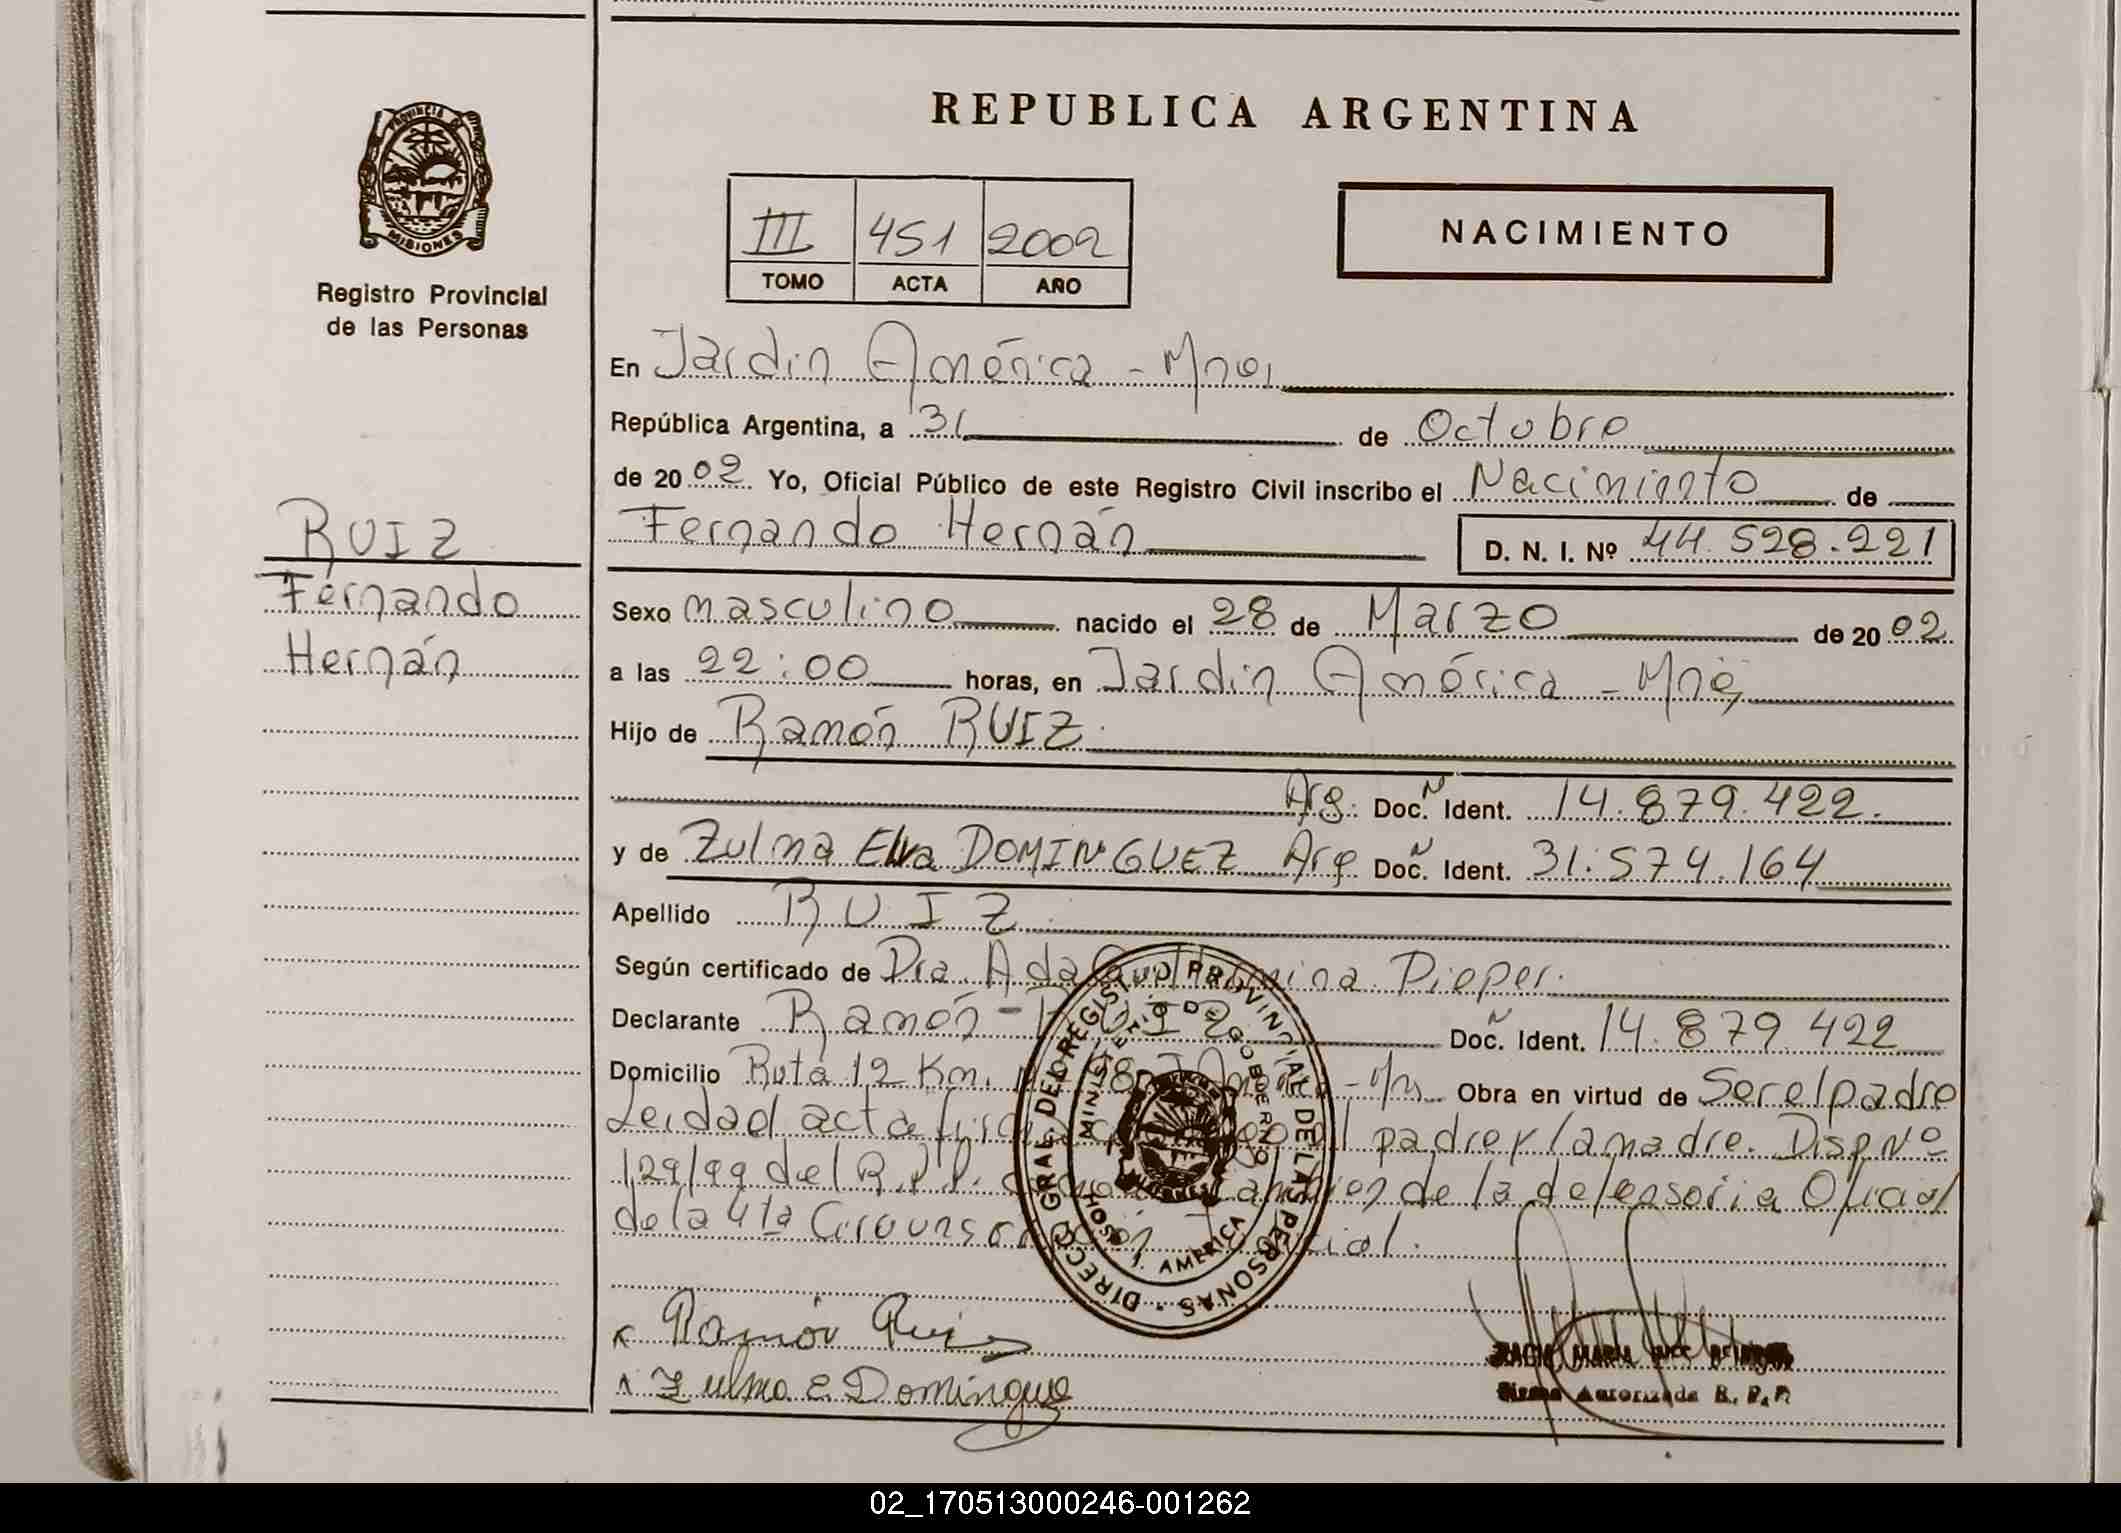 REPUBLICA ARGENTINA
PROVINCIA DE
MISIONES
Registro Provincial
de las Personas
III 451 2002
TOMO ACTA AÑO
NACIMIENTO
En Jardin América - Mnes
República Argentina, a 31 de Octubre
de 2002 Yo, Oficial Público de este Registro Civil inscribo el Nacimiento de
Fernando Hernán D. N. I. Nº 44.528.221
RUIZ
Fernando
Hernán
Sexo masculino nacido el 28 de Marzo de 2002
a las 22:00 horas, en Jardin América - Mnes
Hijo de Ramón RUIZ
Arg. Doc. N Ident. 14.879.422.
y de Zulma Elva DOMINGUEZ Arg Doc. N Ident. 31.574.164
Apellido RUIZ
Según certificado de Dra. Ada Guillermina Dieper.
Declarante Ramón RUIZ Doc. N Ident. 14.879.422
Domicilio Ruta 12 Km. América Obra en virtud de Ser el padre
Leida el acta padre y la madre. Disp Nº
129/99 del R.P.P. de la defensoria Oficial
de la 4ta Circunscripción Judicial.
DIRECC. GRAL. DEL REGISTRO PROVINCIAL DE LAS PERSONAS
MINISTERIO DE GOBIERNO
J. AMERICA
Ramón Ruiz
Zulma E. Dominguez
MARIA
Firma Autorizada R. P. P.
02_170513000246-001262